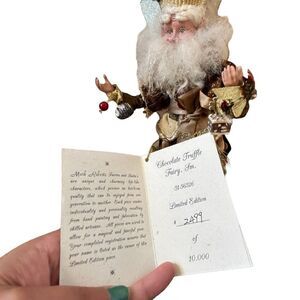 Mark Roberts Fairies and Santa's
are unique and charming by the
characters, which possess an heirloom
quality that can be enjoyed from one
generation to another. Each piece varies
individuality and personality resulting
from hand painting and fabrication by
skilled artisans. All the poses are
allow for a magical and fanciful
Your completed registration assures that
your name is listed as the owner of the
Limited Edition piece.
Chocolate Truffle
Fairy, Sm.
51-56326
Limited Edition
# 2499
of
10,000